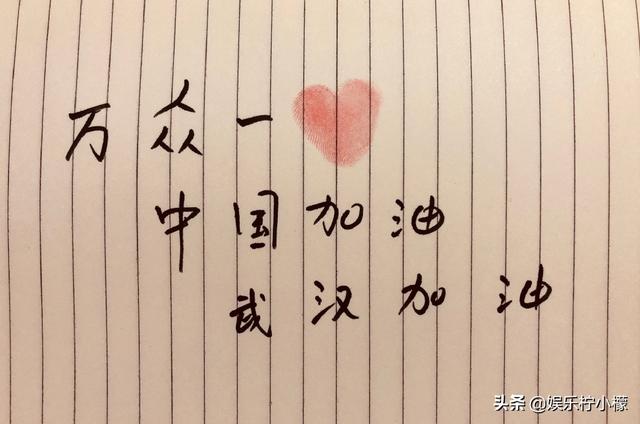 万众一
中国加油
武汉加油
头条 @娱乐柠小檬